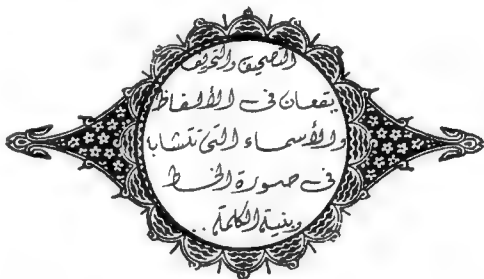 التصحيف والتحريف
يقعان فى الألفاظ
والأسماء التى تتشابه
فى صورة الخط
وبنية الكلمة ..